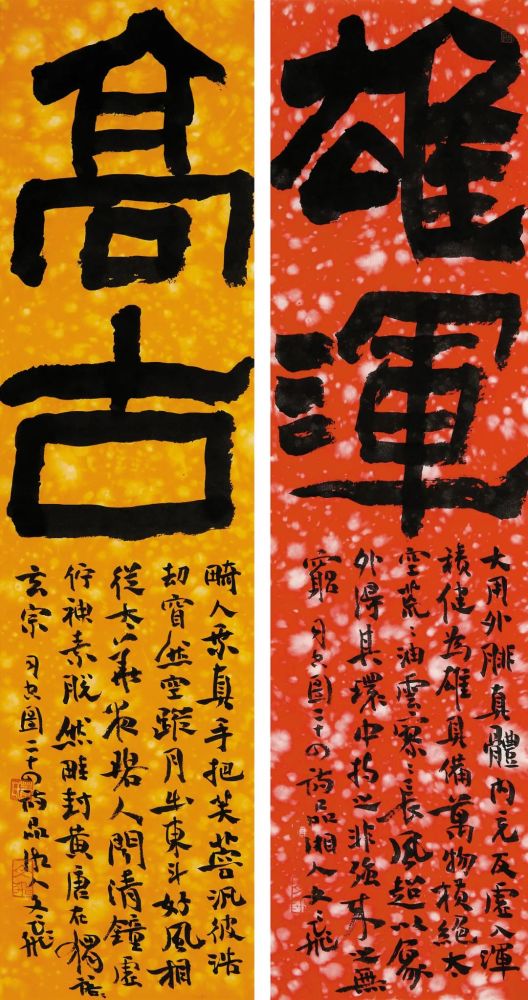 雄渾
大用外腓真體內充反虛入渾
積健為雄具備萬物橫絕太
空荒〻油雲寥〻長風超以象
外得其環中持之非強來之無
窮 司空圖二十四詩品湘人文飛
髙古
畸人乘真手把芙蓉汎彼浩
劫窅然空蹤月出東斗好風相
從太華夜碧人聞清鐘虛
佇神素脫然畦封黃唐在獨落
玄宗 司空圖二十四詩品湘人文飛